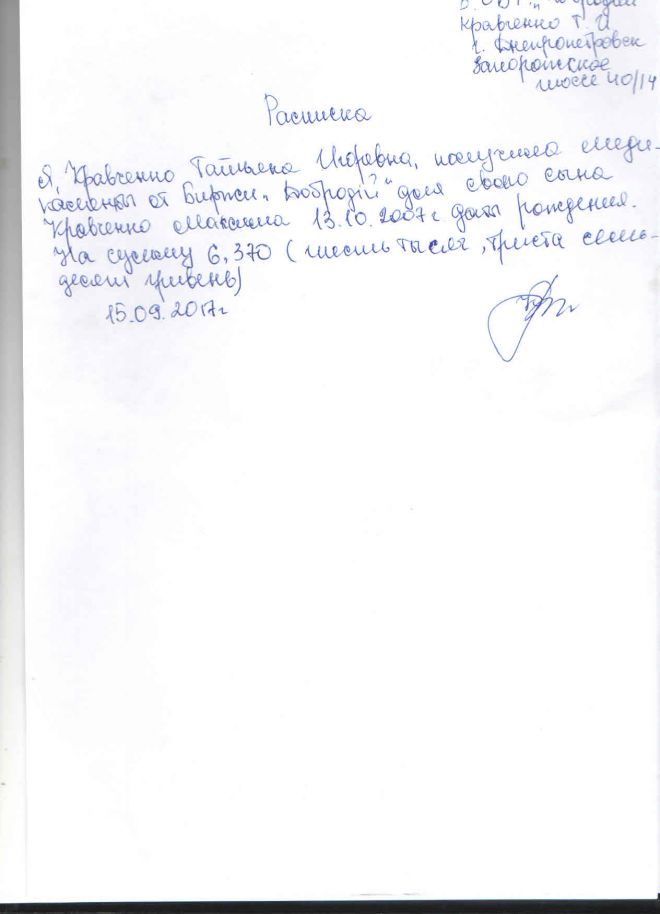 Кравченко Т. И
г. Днепропетровск
Запорожское
шоссе 40/14
Расписка
Я, Кравченко Татьяна Игоревна, получила меди-
каменты от Биржи „Добродій“ для свого сына
Кравченко Максима 13.10.2007г даты рождения.
На сумму 6,370 (шесть тысяч, триста семь-
десят гривень)
15.09.2017г